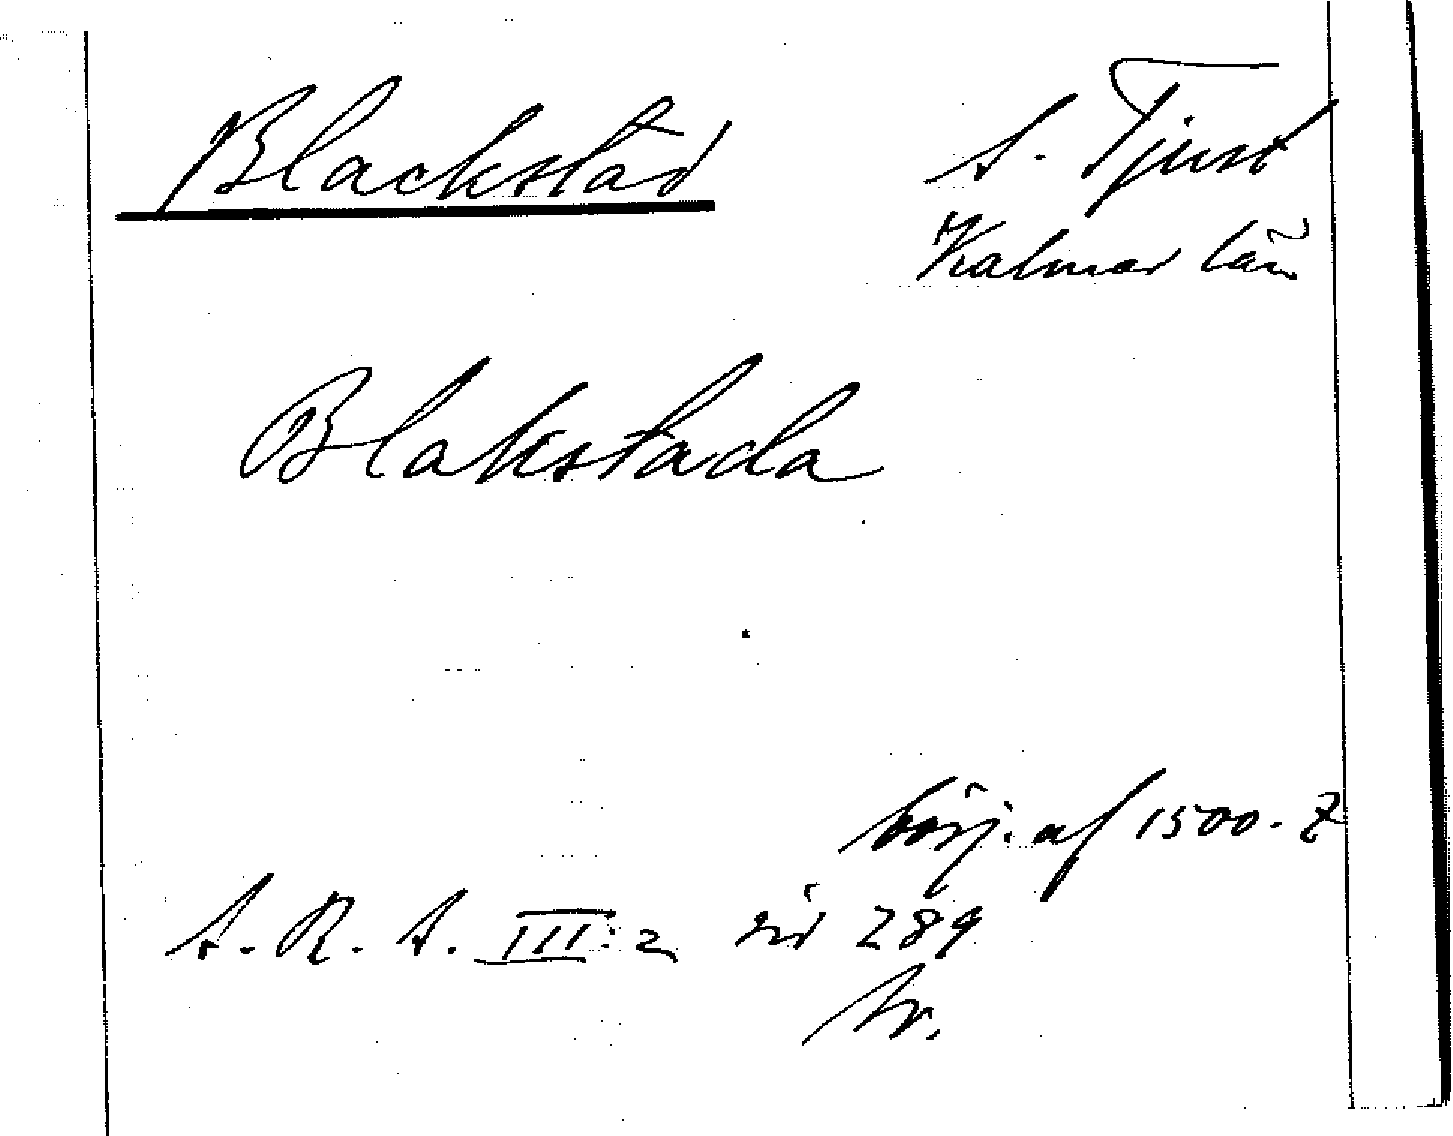 Blackstad
S. Tjust
Kalmar län
Blakstada
börj. af 1500. t
S. R. S. III: 2 sid 289
tr.